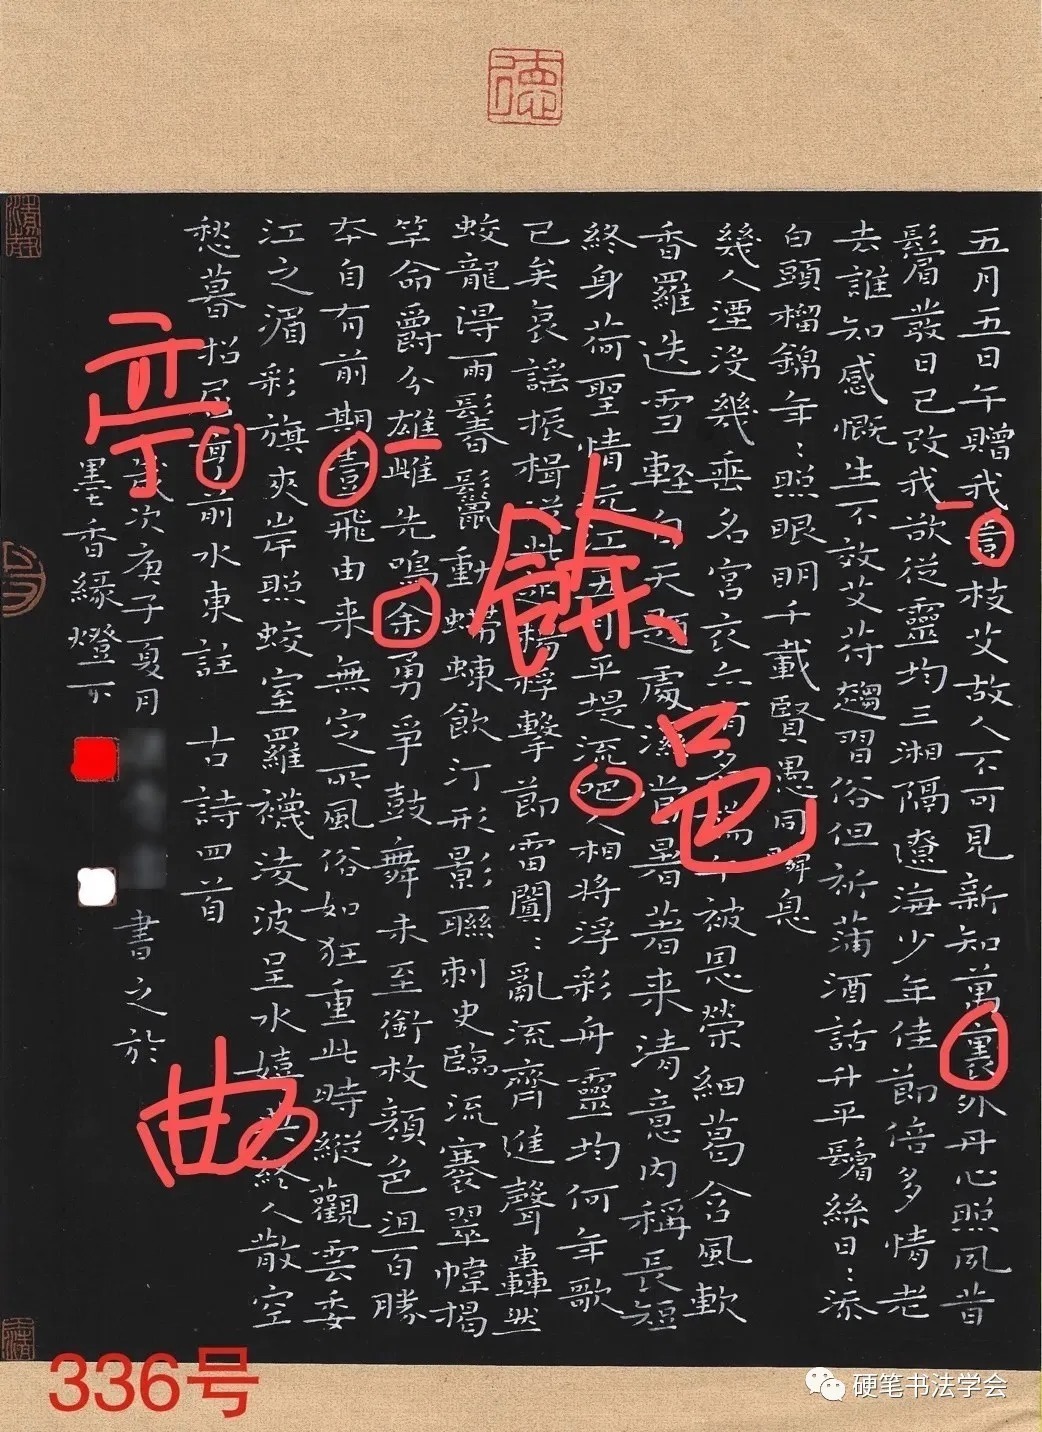 德
五月五日午贈我壹枝艾故人不可見新知萬裏外丹心照夙昔
鬢眉發日已改我欲從靈均三湘隔遼海少年佳節倍多情老
去誰知感慨生不效艾符趨習俗但祈蒲酒話升平鬢絲日:添
白頭榴錦年:照眼明千載賢愚同瞬息
幾人湮沒幾垂名宮衣亦有多端午被恩榮細葛含風軟
香羅迭雪輕自天題處濕當暑著来清意內稱長短
終身荷聖情沅江五月平堤流吧人相將浮彩舟靈均何年歌
已矣哀謠振楫從此起楊桴擊節雷闐:亂流齊進聲轟然
蛟龍得雨鬐鬣動螮蝀飲江形影聯刺史臨流褰翠幃揭
竿命爵分雄雌先鳴余勇爭鼓舞未至銜枚顏色沮百勝
本自有前期壹飛由来無定所風俗如狂重此時縱觀雲委
江之湄彩旗夾岸照蛟室羅襪淩波呈水嬉終人散空
愁暮招屈亭前水東註 古詩四首
歲次庚子夏月 書之於
墨香緣燈下
一
一
餘
邑
亭
曲
336号
硬笔书法学会